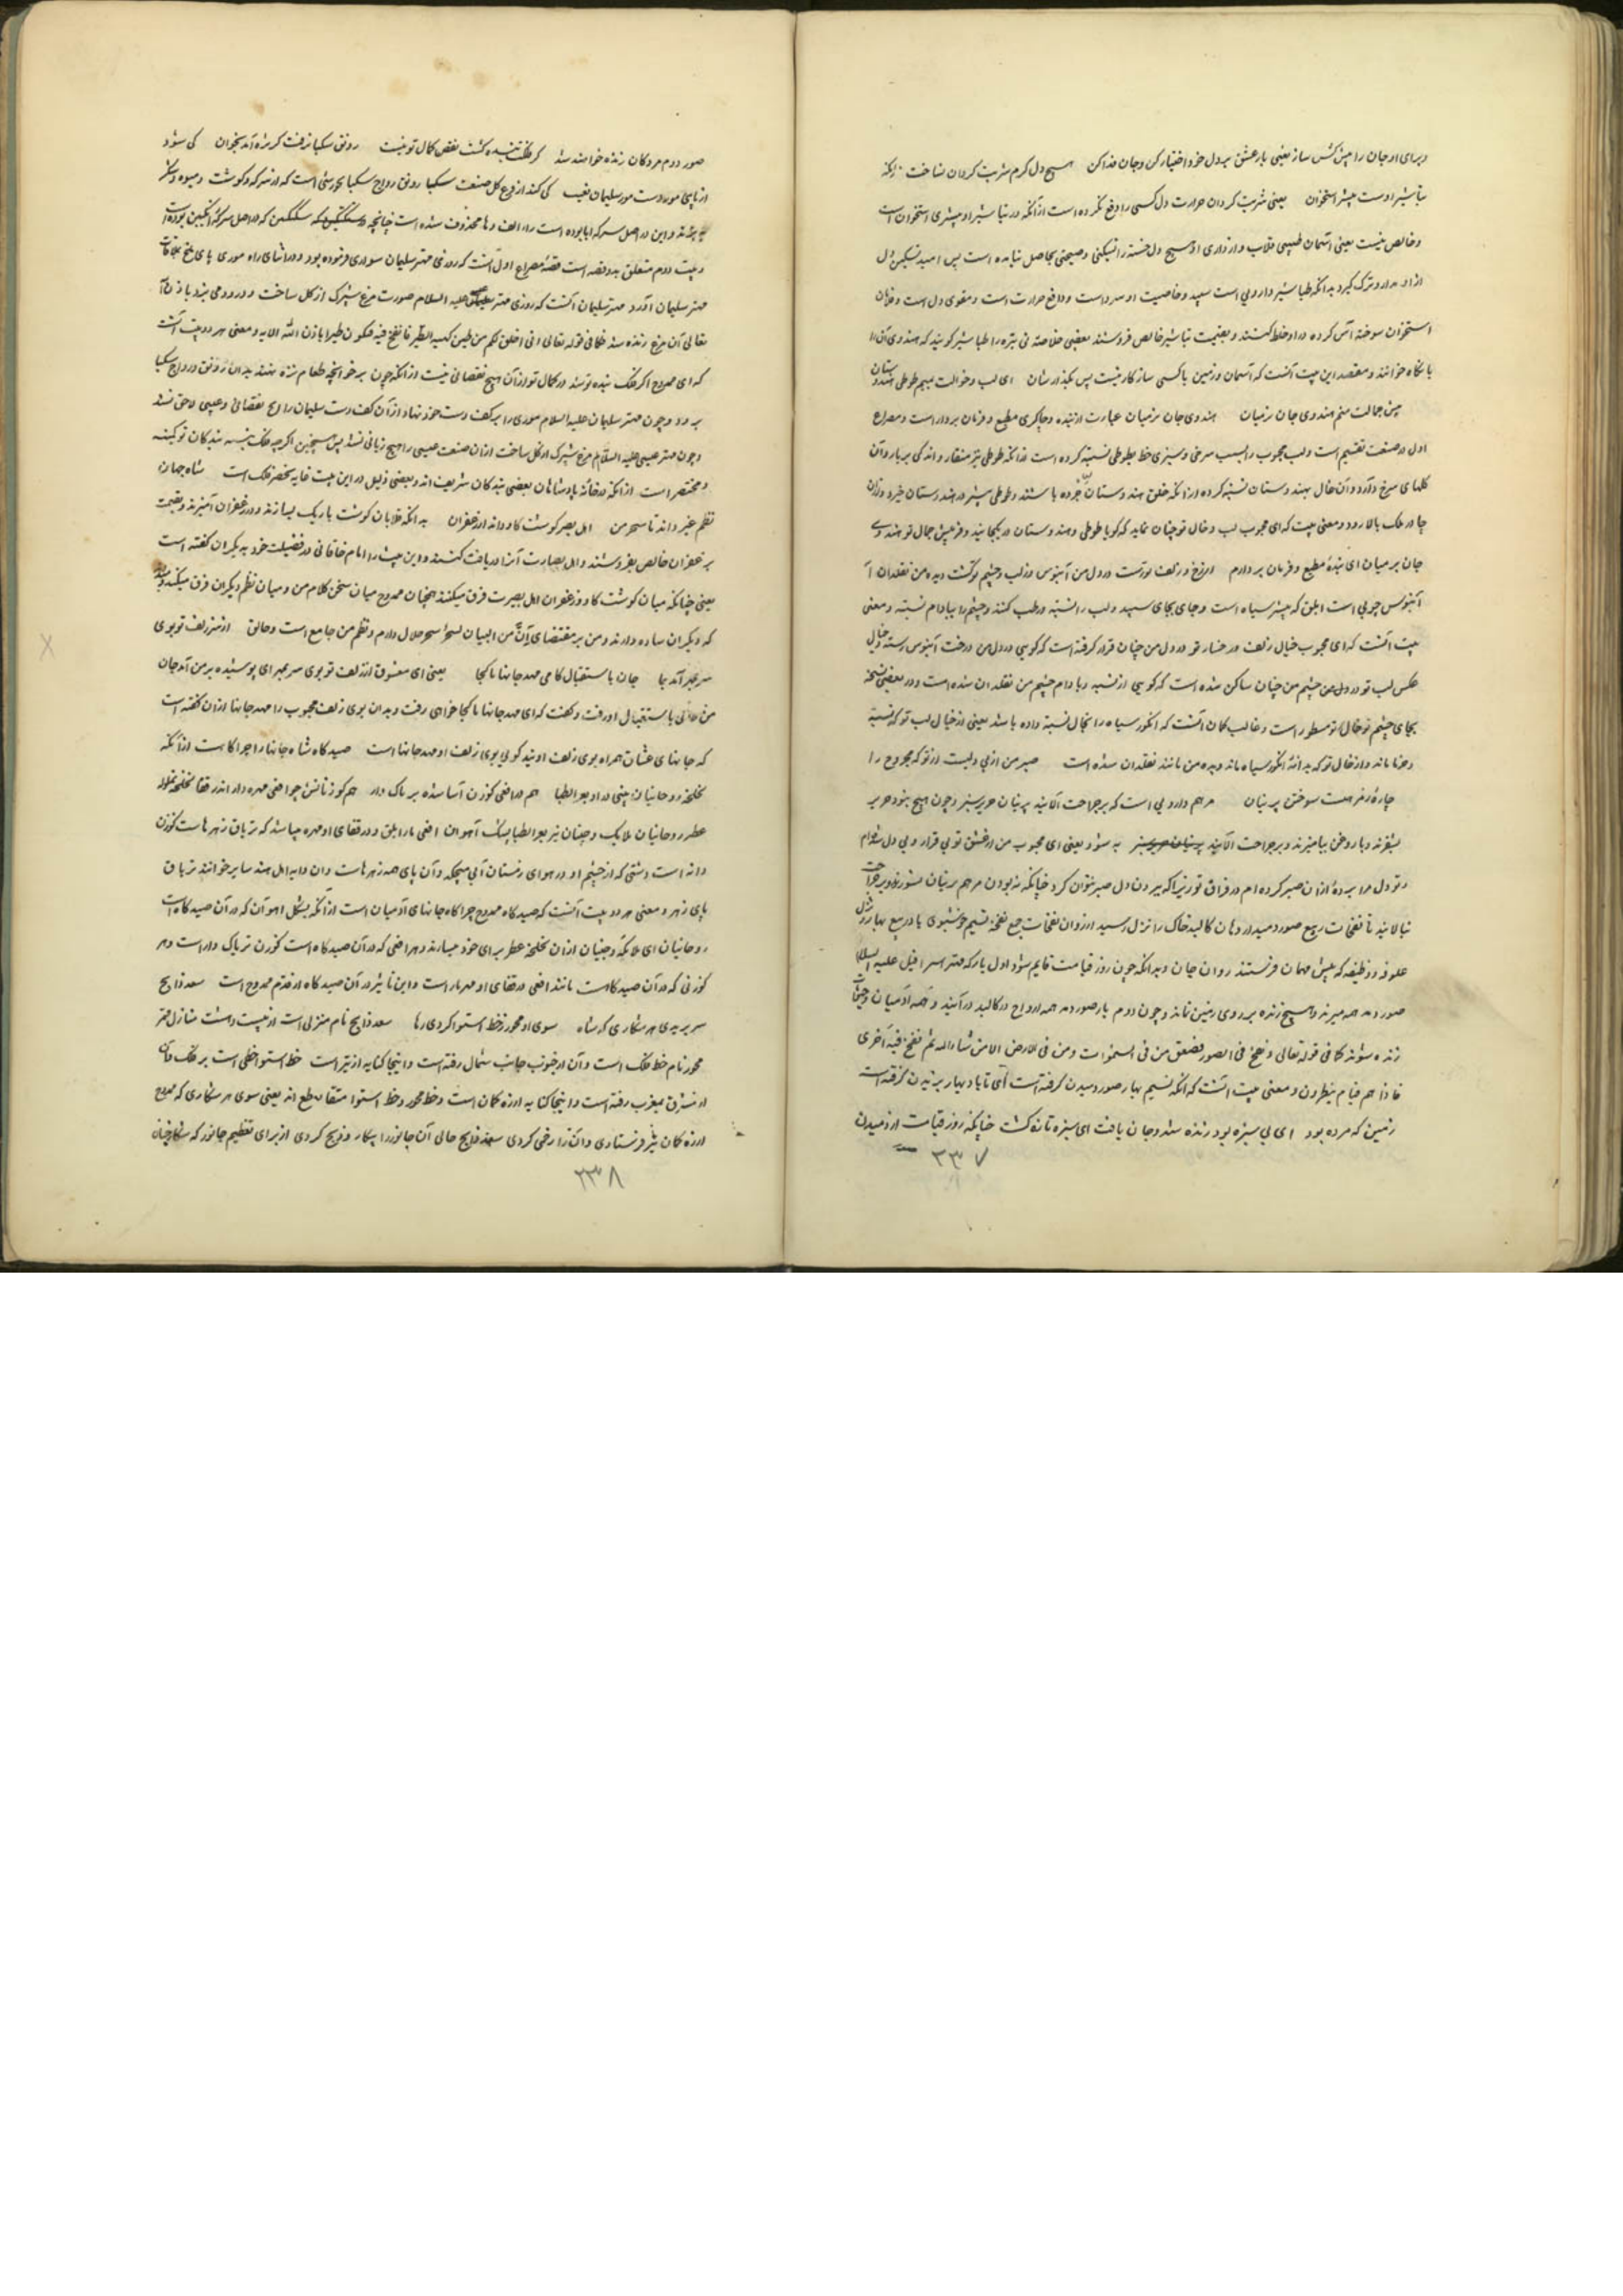 و برای او جان را پیش کش ساز یعنی بار عشق بر دل خود اختیار کن و جان فدا کن هیچ دل گرم شربت گردان نساخت زانکه
تباشیر اوست بیشتر استخوان یعنی شربت گردان حرارت دل کسی را دفع نکرده است از آنکه در تباشیر او بیشتری استخوان است
و خالص نیست یعنی آسمان طبیبی قلاب و از داروی او هیچ دل خسته را تسکینی و صحتی بحاصل نیامده است پس امید تسکین دل
ازو مدار و ترک گیر بدانکه طباشیر دارویی است سپید و خاصیت او سرد است و دافع حرارت است و مقوی دل است و
استخوان سوخته آس کرده در او خلط کنند و بقیمت تباشیر خالص فروشند بعضی خلاصه نی تیره را طباشیر گویند که هندوی آن را
خوانند و مقصد این بیت آنست که آسمان و زمین با کسی سازگار نیست پس بگذر شان ای لب و خالت بهم طوطی هندوستان
پیش جمالت منم هندوی جان بر میان هندوی جان بر میان عبارت از بنده و چاکری مطیع و فرمان بردار است و مصراع
اول در صنعت تقسیم است و لب محبوب را بسبب سرخی و سبزی خط بطوطی نسبت کرده است از آنکه طوطی نیز منقار
گلهای سرخ دارد و آن خال بهندوستان نسبت کرده از آنکه خلق هندوستان چرده باشند و طوطی بیشتر در هندوستان خیزد و از آن
و معنی بیت که ای محبوب لب و خال تو چنان نماید که گویا طوطی و هندوستان در یکجایند و من پیش جمال تو هندوی
جان بر میان ای بندهٔ مطیع و فرمان بردارم از رخ و زلف تو رست در دل من آبنوس وز لب و چشم تو گشت دیدهٔ من نقلدان
آبنوس چوبی است ابلق که بیشتر سیاه است و جای بجای سپید و لب را نسبت برطب کنند و چشم را ببادام نسبت و معنی
بیت آنست که ای محبوب خیال زلف و رخسار تو در دل من چنان قرار گرفته است که گویی در دل من درخت آبنوس رسته و خیال
عکس لب تو در دل من چشم من چنان ساکن شده است که گویی از پسته و بادام چشم من نقلدان شده است و در بعضی نسخه
بجای چشم تو خال تو مسطور است و غالب گمان آنست که انگور سیاه را بخال نسبت داده باشد یعنی از خیال لب تو که نسبت
ماند و از خال تو که بدانهٔ انگور سیاه ماند دیدهٔ من مانند نقلدان شده است صبر من از بی دلیست از تو که مجروح را
چاره ز مرهمست سوختن پرنیان مرهم دارویی است که بر جراحت آلایند پرنیان حریر سبز و چون هیچ نبود حریر
بسوزند و با روغن بیامیزند و بر جراحت آلایند به شود یعنی ای محبوب من از عشق تو بی قرار و بی دل شده ام
و تو دل مرا بردهٔ از آن صبر کرده ام در فراق تو زیرا که بیرون دل صبر نتوان کرد چنانکه نبودن مرهم پرنیان بسوزند و بر جراحت
تا نفخات ربیع صور دمید از دهان کالبد خاک را نزل رسید از روان نفخات جمع نفخه نسیم خوشبوی باد ربیع بهار و نزل
علوفه و وظیفه که پیش مهمان فرستند روان جان و بدانکه چون روز قیامت قایم شود اول بار که مهتر اسرافیل علیه السلام
صور دمد همه میرند و هیچ زنده بر روی زمین نماند و چون دوم بار صور دمد همه ارواح در کالبد درآیند و همه آدمیان
زنده شوند کما فی قوله تعالی و نفخ فی الصور فصعق من فی السموات و من فی الارض الا من شاء الله ثم نفخ فیه اخری
فاذا هم قیام ینظرون و معنی بیت آنست که آنکه نسیم بهار صور دمیدن گرفته است ای تا باد بهار وزیدن گرفته است
زمین که مرده بود ای بی سبزه بود زنده شد و جان یافت ای سبزه تازه گشت چنانکه روز قیامت از دمیدن
۳۳۷
صور دوم مردگان زنده خواهند شد گر فلکت بنده گشت نقص کمال تو نیست رونق سکبا نرفت گر تره آمد بخوان کی شود
از پای مور دست سلیمان بعیب کی کند از مرغ گل صنعت سکبا رونق رواج سکبا خورشی است که از سرکه و گوشت و میوه و شکر
پزند و این در اصل سرکه ابا بوده است را و الف و ها محذوف شده است چنانچه سکنگبین که در اصل سرکه انگبین بوده است
و بیت دوم متعلق بدو قصه است قصهٔ مصراع اول آنست که روزی مهتر سلیمان سواری فرموده بود و در اثنای راه موری پای ملخ
مهتر سلیمان آورد علیه السلام صورت مرغ شپرک از گل ساخت و درو دمی بزد باذن الله
تعالی آن مرغ زنده شد کما فی قوله تعالی انی اخلق لکم من الطین کهیئة الطیر فانفخ فیه فیکون طیرا باذن الله الایه و معنی هر دو بیت آنست
که ای ممدوح اگر فلک بندهٔ تو شد در کمال تو از آن هیچ نقصانی نیست از آنکه چون بر خوانچه طعام تره نهند بدان رونق و رواج سکبا
نرود و چون مهتر سلیمان علیه السلام موری را بر کف دست خود نهاد از آن کف دست سلیمان را هیچ نقصانی و عیبی لاحق نشد
و چون مهتر عیسی علیه السلام مرغ شپرک از گل ساخت از آن صنعت عیسی را هیچ زیانی نشد پس همچنین اگرچه فلک بنسبت بندگان تو کمینه
و مختصر است از آنکه در خانهٔ پادشاهان بعضی بندگان شریف اند و بعضی ذلیل در این بیت فایه مختصر فلک است شاه جهان
نظم غیر داند تا سحر من اهل بصر گوشت گاو داند از زعفران بدانکه قلابان گوشت باریک بسازند و در زعفران آمیزند و بقیمت
زعفران خالص بفروشند و اهل بصارت آنرا دریافت کنند و این بیت را امام خاقانی در فضیلت خود به دیگران گفته است
یعنی چنانکه میان گوشت گاو و زعفران اهل بصیرت فرق میکنند همچنان ممدوح میان سخن کلام من و میان نظم دیگران فرق میکند
که دیگران ساده دارند و من بر مقتضای ان من البیان لسحرا سحر حلال دارم و نظم من جامع است از سر زلف تو بوی
سر بمهر آمد بما جان باستقبال کای مهد جانها تا کجا یعنی ای معشوق از زلف تو بوی سر بمهر ای پوشیده بر من آمد جان
من باستقبال او رفت و گفت که ای مهد جانها تا کجا خواهی رفت و بدان بوی زلف محبوب را مهد جانها از آن گفته است
که جانهای عشاق همراه بوی زلف اویند گویی بوی زلف او مهد جانها است صیدگاه شاه جانها را چراگاست از آنکه
لخلخه روحانیان بینی در او بعر الظبا هم در او افعی گوزن آسا شده تریاک دار هم گوزنانش چو افعی مهره دار اندر قفا لخلخه
عطر روحانیان ملایک و جنیان نیز بعر الظبا پشک آهوان افعی مار ابلق و در قفای او مهره باشد که تریاق زهر هاست گوزن
دانه است دشتی که از چشم او در هوای زمستان آبی میچکد و آن پای همه زهر هاست و آن را اهل هند سابر خوانند تریاق
پای زهر و معنی هر دو بیت آنست که صیدگاه ممدوح چراگاه جانهای آدمیان است از آنکه پشکل آهوان که در آن صیدگاه است
روحانیان ای ملایکه و جنیان از آن لخلخه عطر برای خود میسازند و هر افعی که در آن صیدگاه است گوزن تریاک دار است و هر
گوزنی که در آن صیدگاه است مانند افعی در قفای او مهره دار است و این تاثیر در آن صیدگاه از قدم ممدوح است سعد ذابح
سر بریدی هر شکاری که شاه سوی او محور ز خط استوا کردی رها سعد ذابح نام منزلی است از بیست و هشت منازل قمر
محور نام خط فلک است و آن از جنوب جانب شمال رفته است و اینجا کنایه از تیر است خط استوا خطی است بر فلک و آن
از مشرق بمغرب رفته است و اینجا کنایه از زه کمان است و خط محور و خط استوا متقاطع اند یعنی سوی هر شکاری که ممدوح
از زه کمان تیر فرستادی و آن را زخمی کردی سعد ذابح حالی آن جانور را بسکار و ذبح کردی از برای تعظیم جانور که
۳۳۸